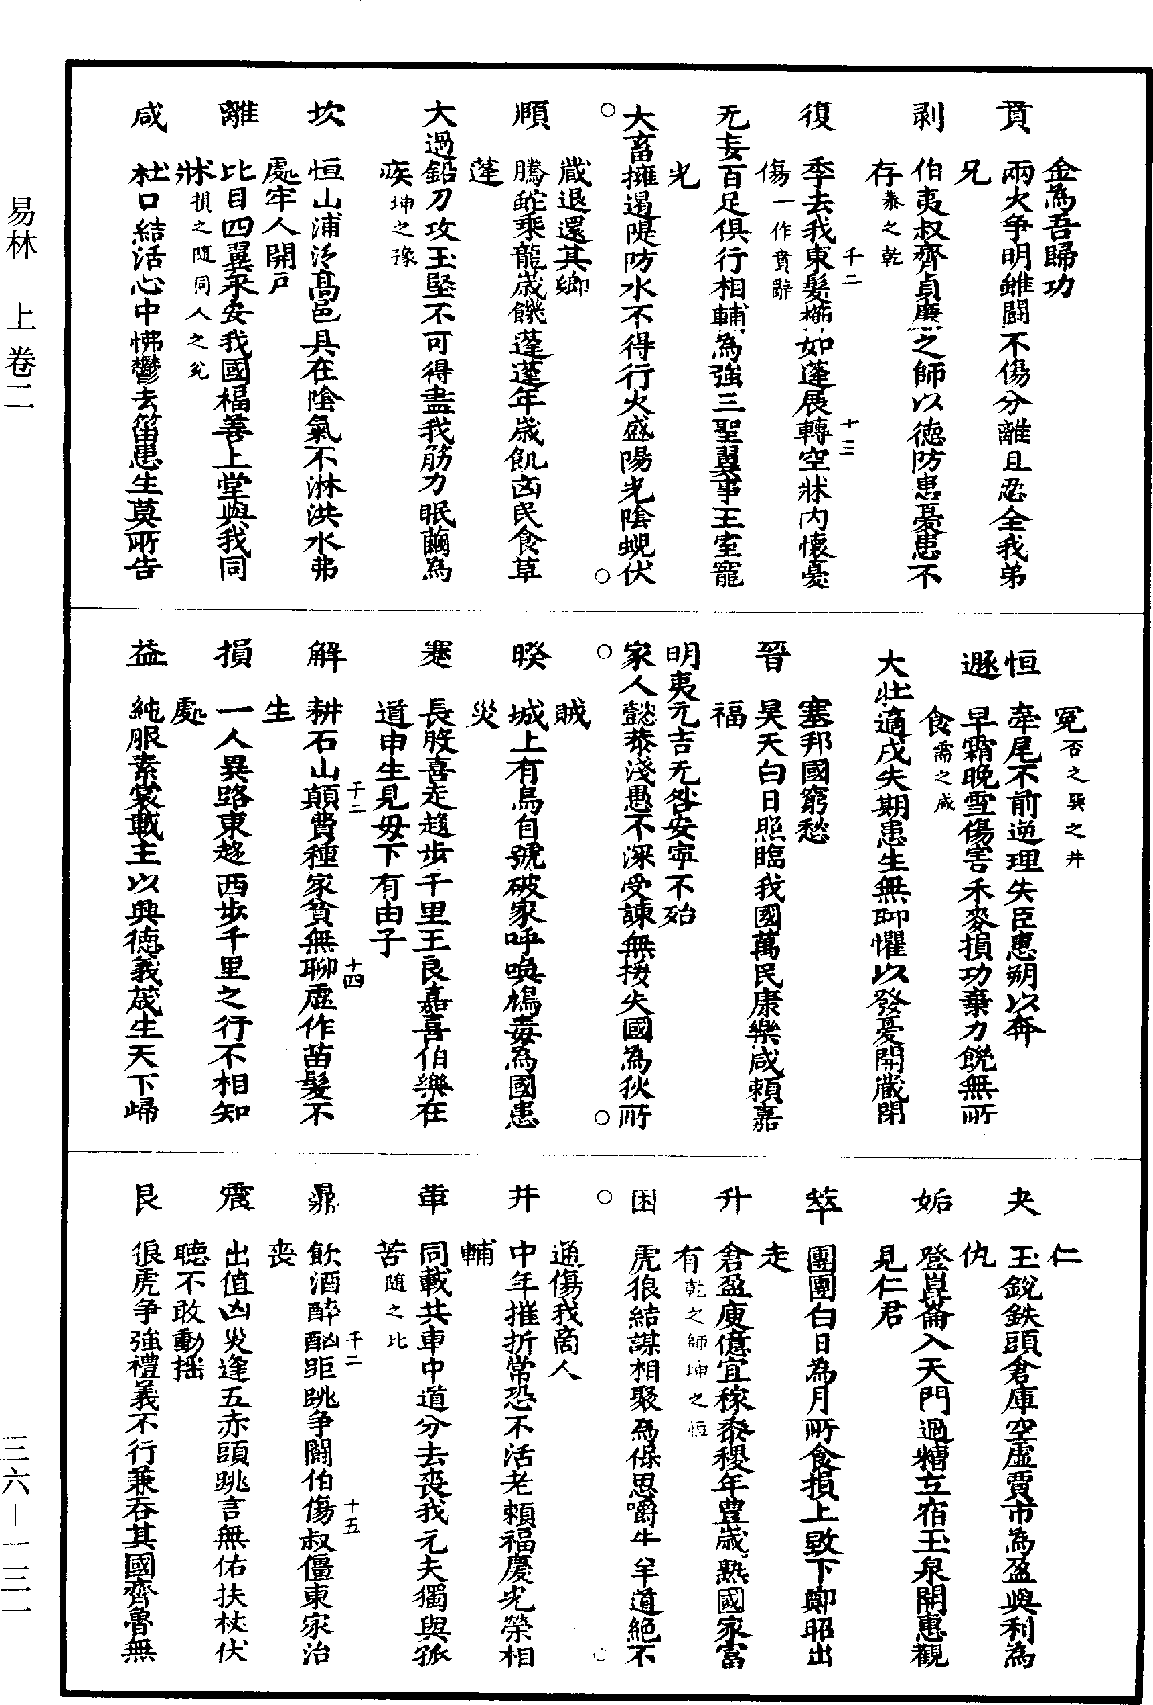 易林 上 卷二
三六—一三一
金為吾歸功
賁 兩火爭明雖鬪不傷分離且忍全我弟
兄
剥 伯夷叔齊貞廉之師以德防患憂患不
存 泰之乾
復 季去我東髮櫛如蓬展轉空牀內懷憂
傷 一作賁辭
千二
十三
无妄百足俱行相輔為強三聖翼事王室寵
光
大畜擁遏隄防水不得行火盛陽光陰蜺伏
藏退還其鄉
頤 騰蛇乘龍歲饑蓬蓬年歲飢凶民食草
蓬
大過鉛刀攻玉堅不可得盡我筋力眠繭為
疾 坤之豫
坎 恒山浦泠高邑具在陰氣不淋洪水弗
處牢人開戶
離 比目四翼來安我國福善上堂與我同
牀 損之隨同人之兊
咸 杜口結活心中怫鬱去笛患生莫所告
冤 否之巽之井
恒 牽尾不前逆理失臣惠朔以奔
遯 早霜晚雪傷害禾麥損功棄力饑無所
食 需之咸
大壯適戍失期患生無聊懼以發憂開藏閉
塞邦國窮愁
晉 昊天白日照臨我國萬民康樂咸賴嘉
福
明夷元吉无咎安寧不殆
家人懿恭淺愚不深受諫無援失國為狄所
賊
暌 城上有烏自號破家呼喚鴆毒為國患
災
蹇 長股喜走趍步千里王良嘉喜伯樂在
道申生見毋下有由子
解 耕石山顛費種家貧無聊虛作苗髮不
生
千二
十四
損 一人異路東趍西步千里之行不相知
處
益 純服素裳載主以興德義茂生天下歸
仁
夬 玉銳鉄頭倉庫空虛賈市為盈與利為
仇
姤 登崑崙入天門過糟丘宿玉泉開惠觀
見仁君
萃 團團白日為月所食損上毀下鄭昭出
走
升 倉盈庾億宜稼黍稷年豊歲熟國家富
有 乾之師坤之恒
困 虎狼結謀相聚為保思嚼牛羊道絕不
通傷我商人
井 中年摧折常恐不活老賴福慶光榮相
輔
革 同載共車中道分去喪我元夫獨與孤
苦 隨之比
鼎 飲酒醉酗距跳爭鬪伯傷叔僵東家治
喪
千二
十五
震 出值凶災逢五赤頭跳言無佑扶杖伏
聽不敢動摇
艮 很虎爭強禮義不行兼吞其國齊魯無